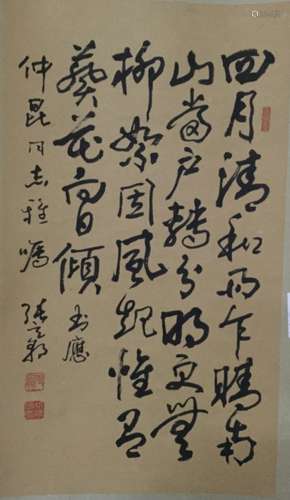 四月清和雨乍晴南
山當户轉分明更無
柳絮因風起惟有
葵花向日傾 書應
仲昆同志雅嘱 張